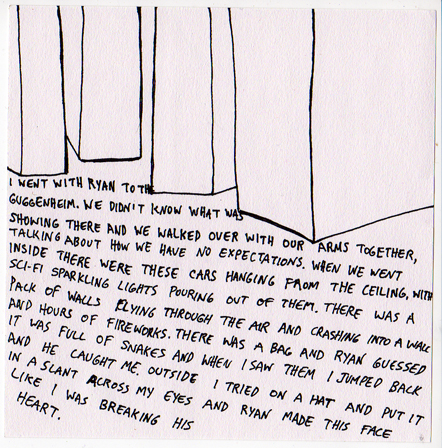 I WENT WITH RYAN TO THE
GUGGENHEIM. WE DIDN'T KNOW WHAT WAS
SHOWING THERE AND WE WALKED OVER WITH OUR ARMS TOGETHER,
TALKING ABOUT HOW WE HAVE NO EXPECTATIONS. WHEN WE WENT
INSIDE THERE WERE THESE CARS HANGING FROM THE CEILING, WITH
SCI-FI SPARKLING LIGHTS POURING OUT OF THEM. THERE WAS A
PACK OF WALLS FLYING THROUGH THE AIR AND CRASHING INTO A WALL
AND HOURS OF FIREWORKS. THERE WAS A BAG AND RYAN GUESSED
IT WAS FULL OF SNAKES AND WHEN I SAW THEM I JUMPED BACK
AND HE CAUGHT ME. OUTSIDE I TRIED ON A HAT AND PUT IT
IN A SLANT ACROSS MY EYES AND RYAN MADE THIS FACE
LIKE I WAS BREAKING HIS
HEART.